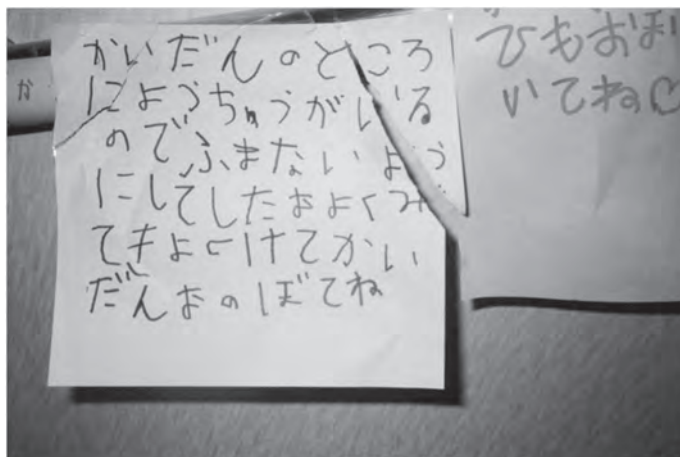 かいだんのところ
にようちゅうがいる
のでふまないよう
にしてしたおよくみ
てきよつけてかい
だんおのぼてね
か
いてね♡